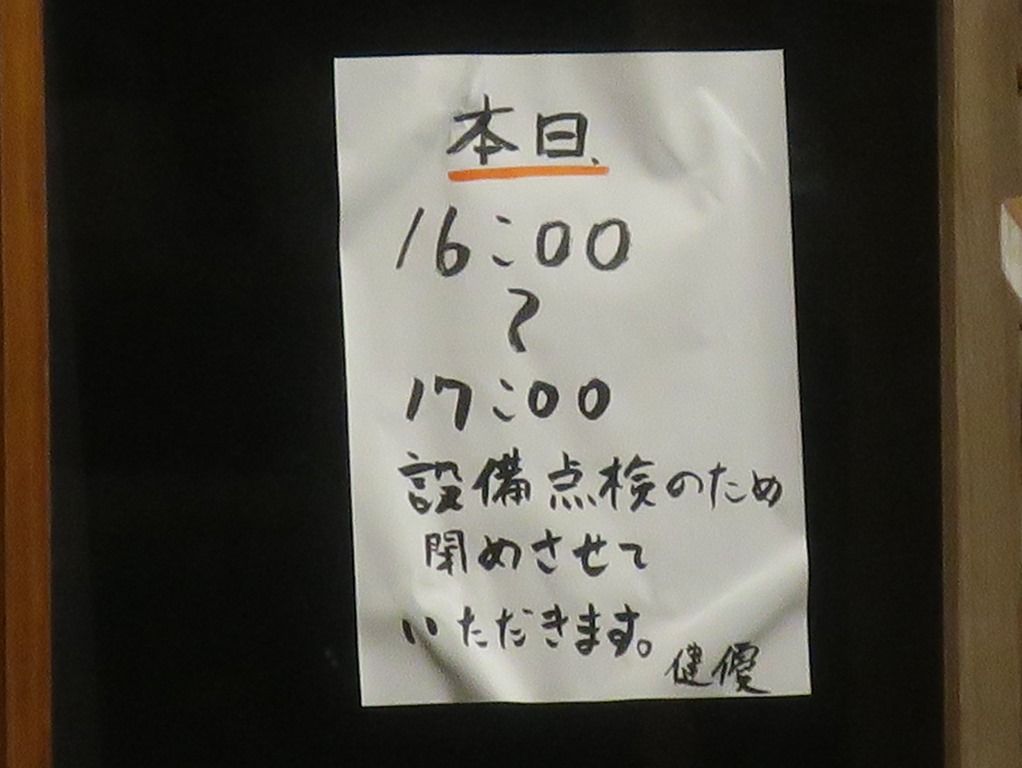 本日、
16:00
〜
17:00
設備点検のため
閉めさせて
いただきます。
健優